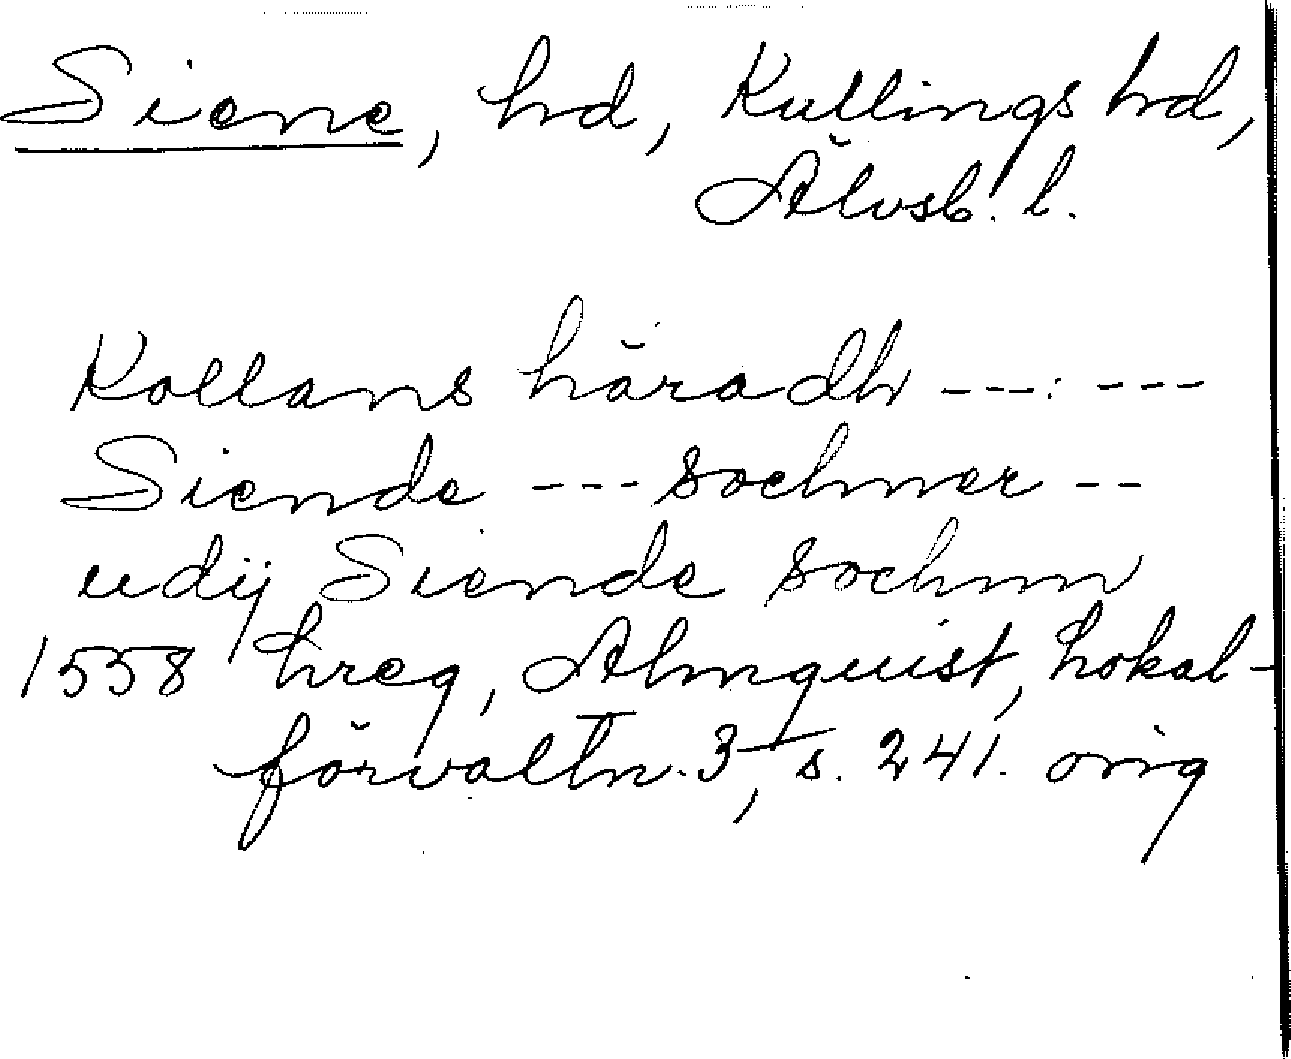 Siene, hd, Kullings hd,
Älvsb. l.
Kollans häradh ---: ---
Siende --- sochner --
udij Siende sochnn
1558 hreg, Almquist, Lokal-
förvaltn. 3, s. 241. orig